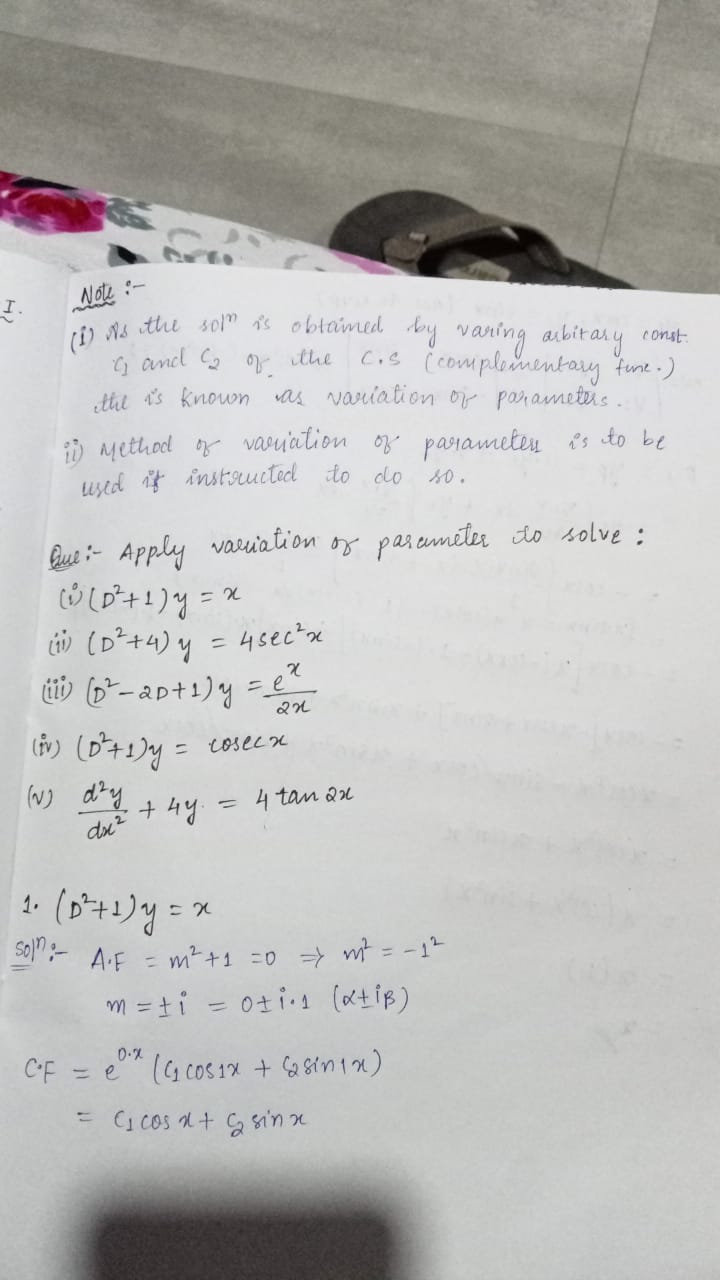 I.
Note :-
(i) As the solⁿ is obtained by varing arbitary const.
C₁ and C₂ of the C.S (complementary func.)
the is known as variation of parameters.
ii) Method of variation of parameters is to be
used if instructed to do so.
Que:- Apply variation of parameter to solve :
(i) (D²+1)y = x
(ii) (D²+4)y = 4sec²x
(iii) (D²-2D+1)y = eˣ/2x
(iv) (D²+1)y = cosecx
(v) d²y/dx² + 4y. = 4 tan 2x
1. (D²+1)y = x
Solⁿ:- A.E = m²+1 =0 ⇒ m² = -1²
m = ±i = 0±i.1 (α±iβ)
C.F = e⁰·ˣ (C₁ cos1x + C₂ sin1x)
= C₁ cos x + C₂ sin x